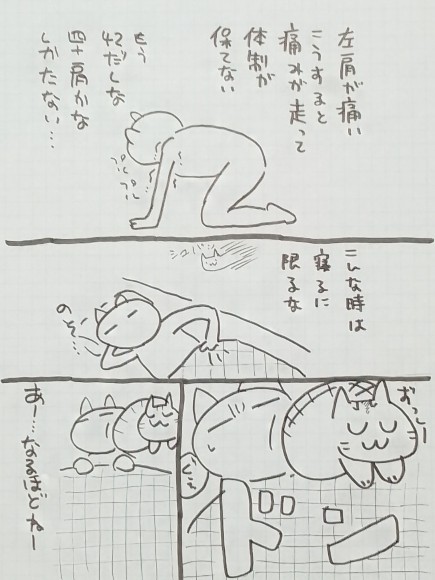 左肩が痛い
こうすると
痛みが走って
体制が
保てない
もう
42だしな
四十肩かな
しかたない…
プル
プル
こんな時は
寝るに
限るな
シュバッ
のそ…
おっこー
ぐぇ
あー…なるほどねー